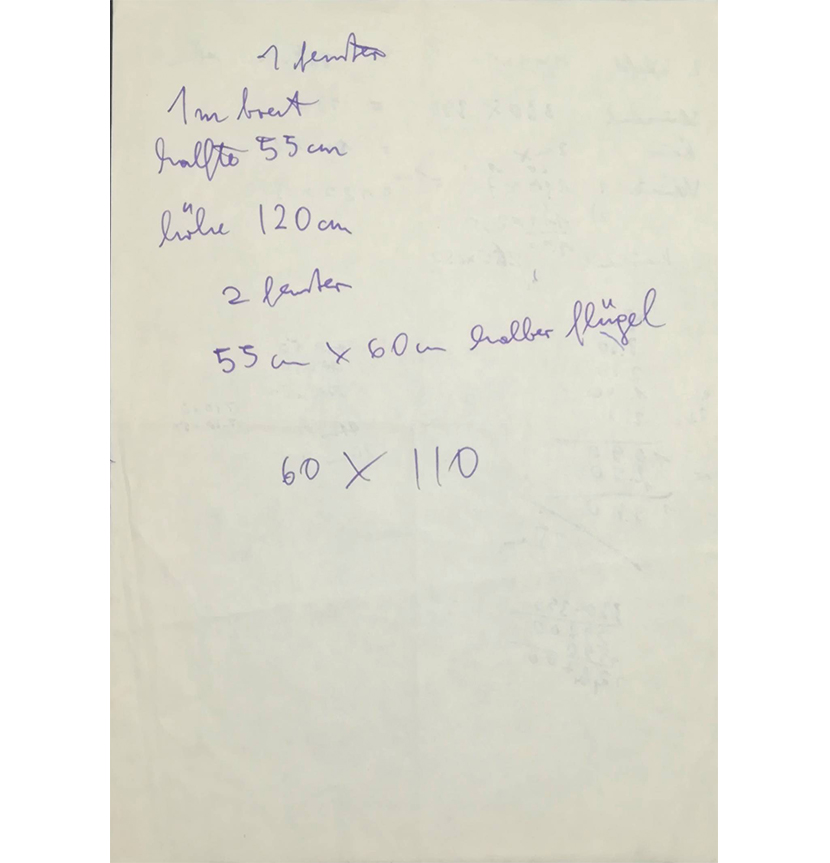 1 fenster
1m breit
halfte 55 cm
höhe 120 cm
2 fenster
55 cm x 60 cm halber flügel
60 x 110